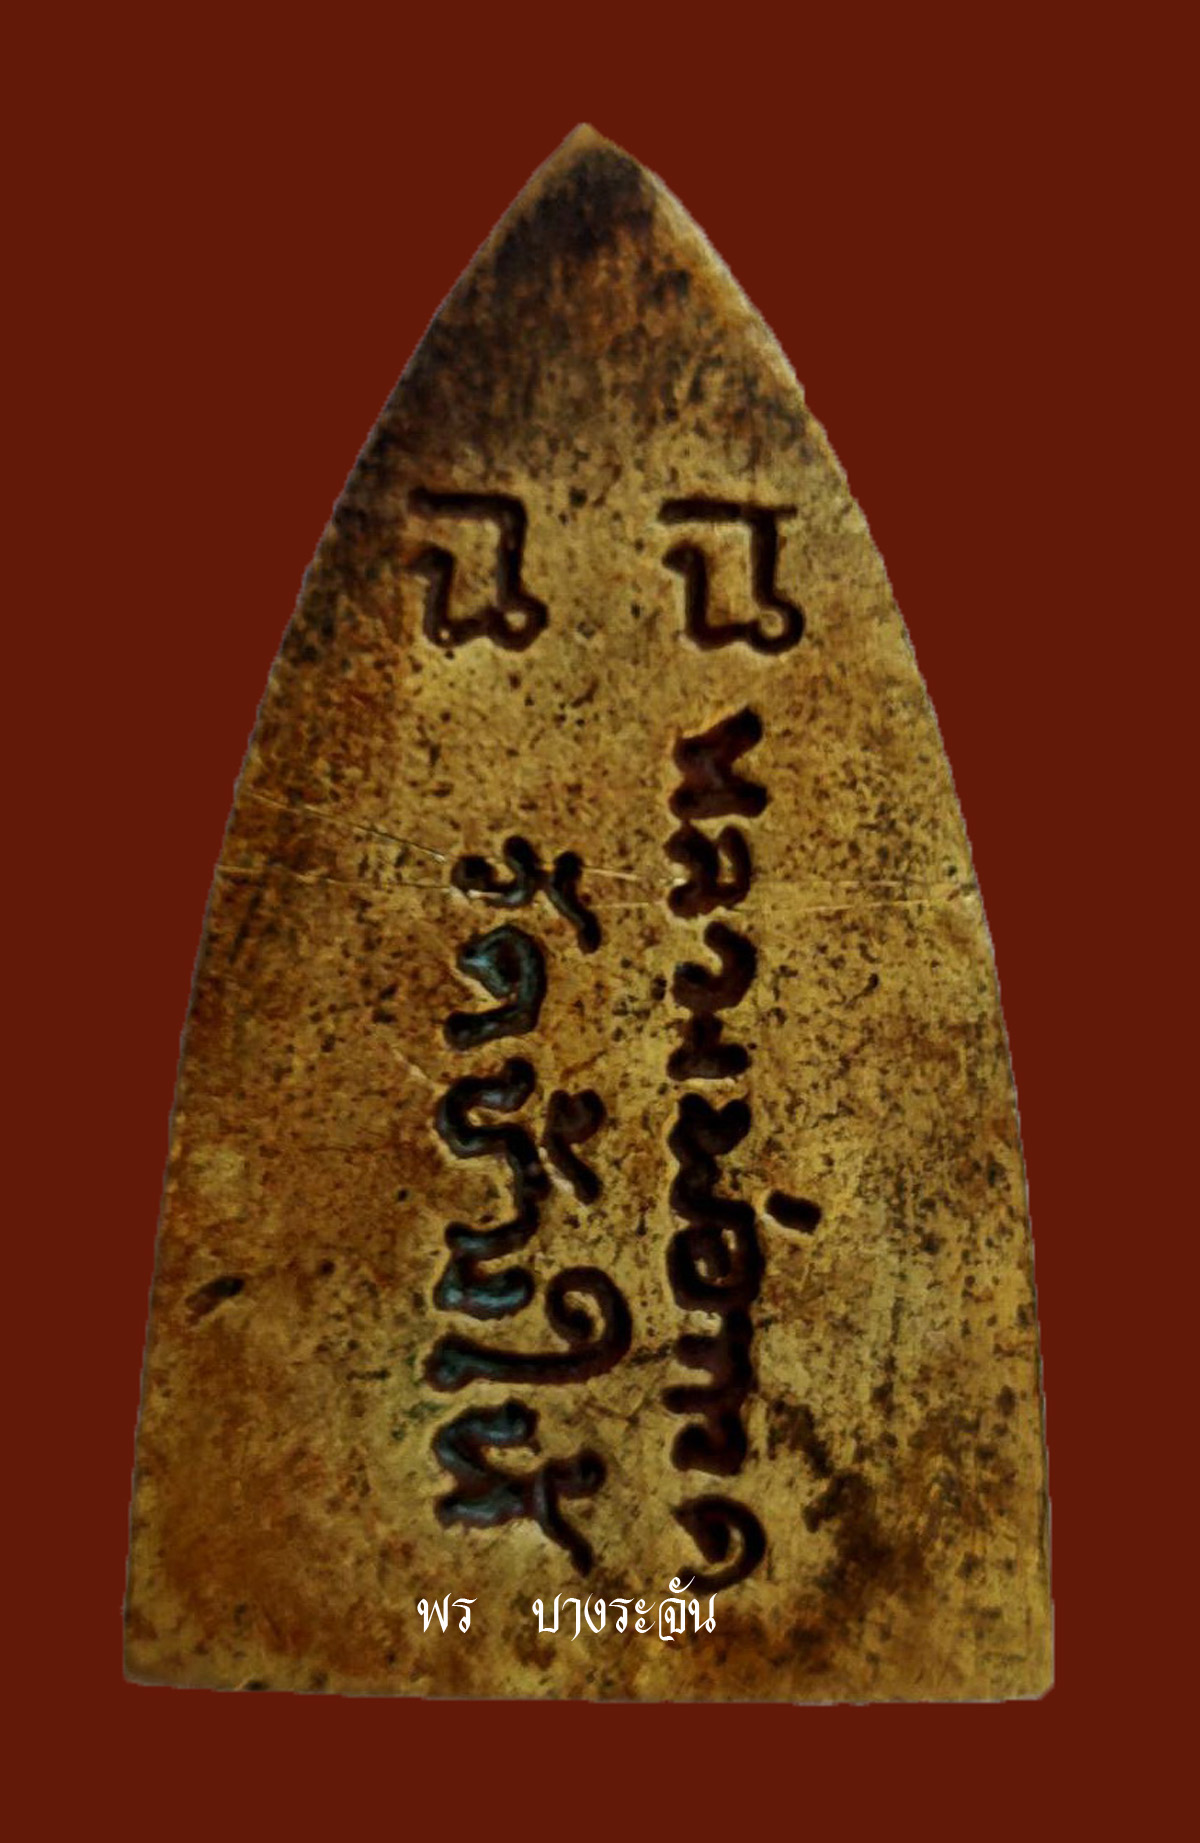 หลวงพ่อทวด
วัดช้างให้
พร บางระจัน